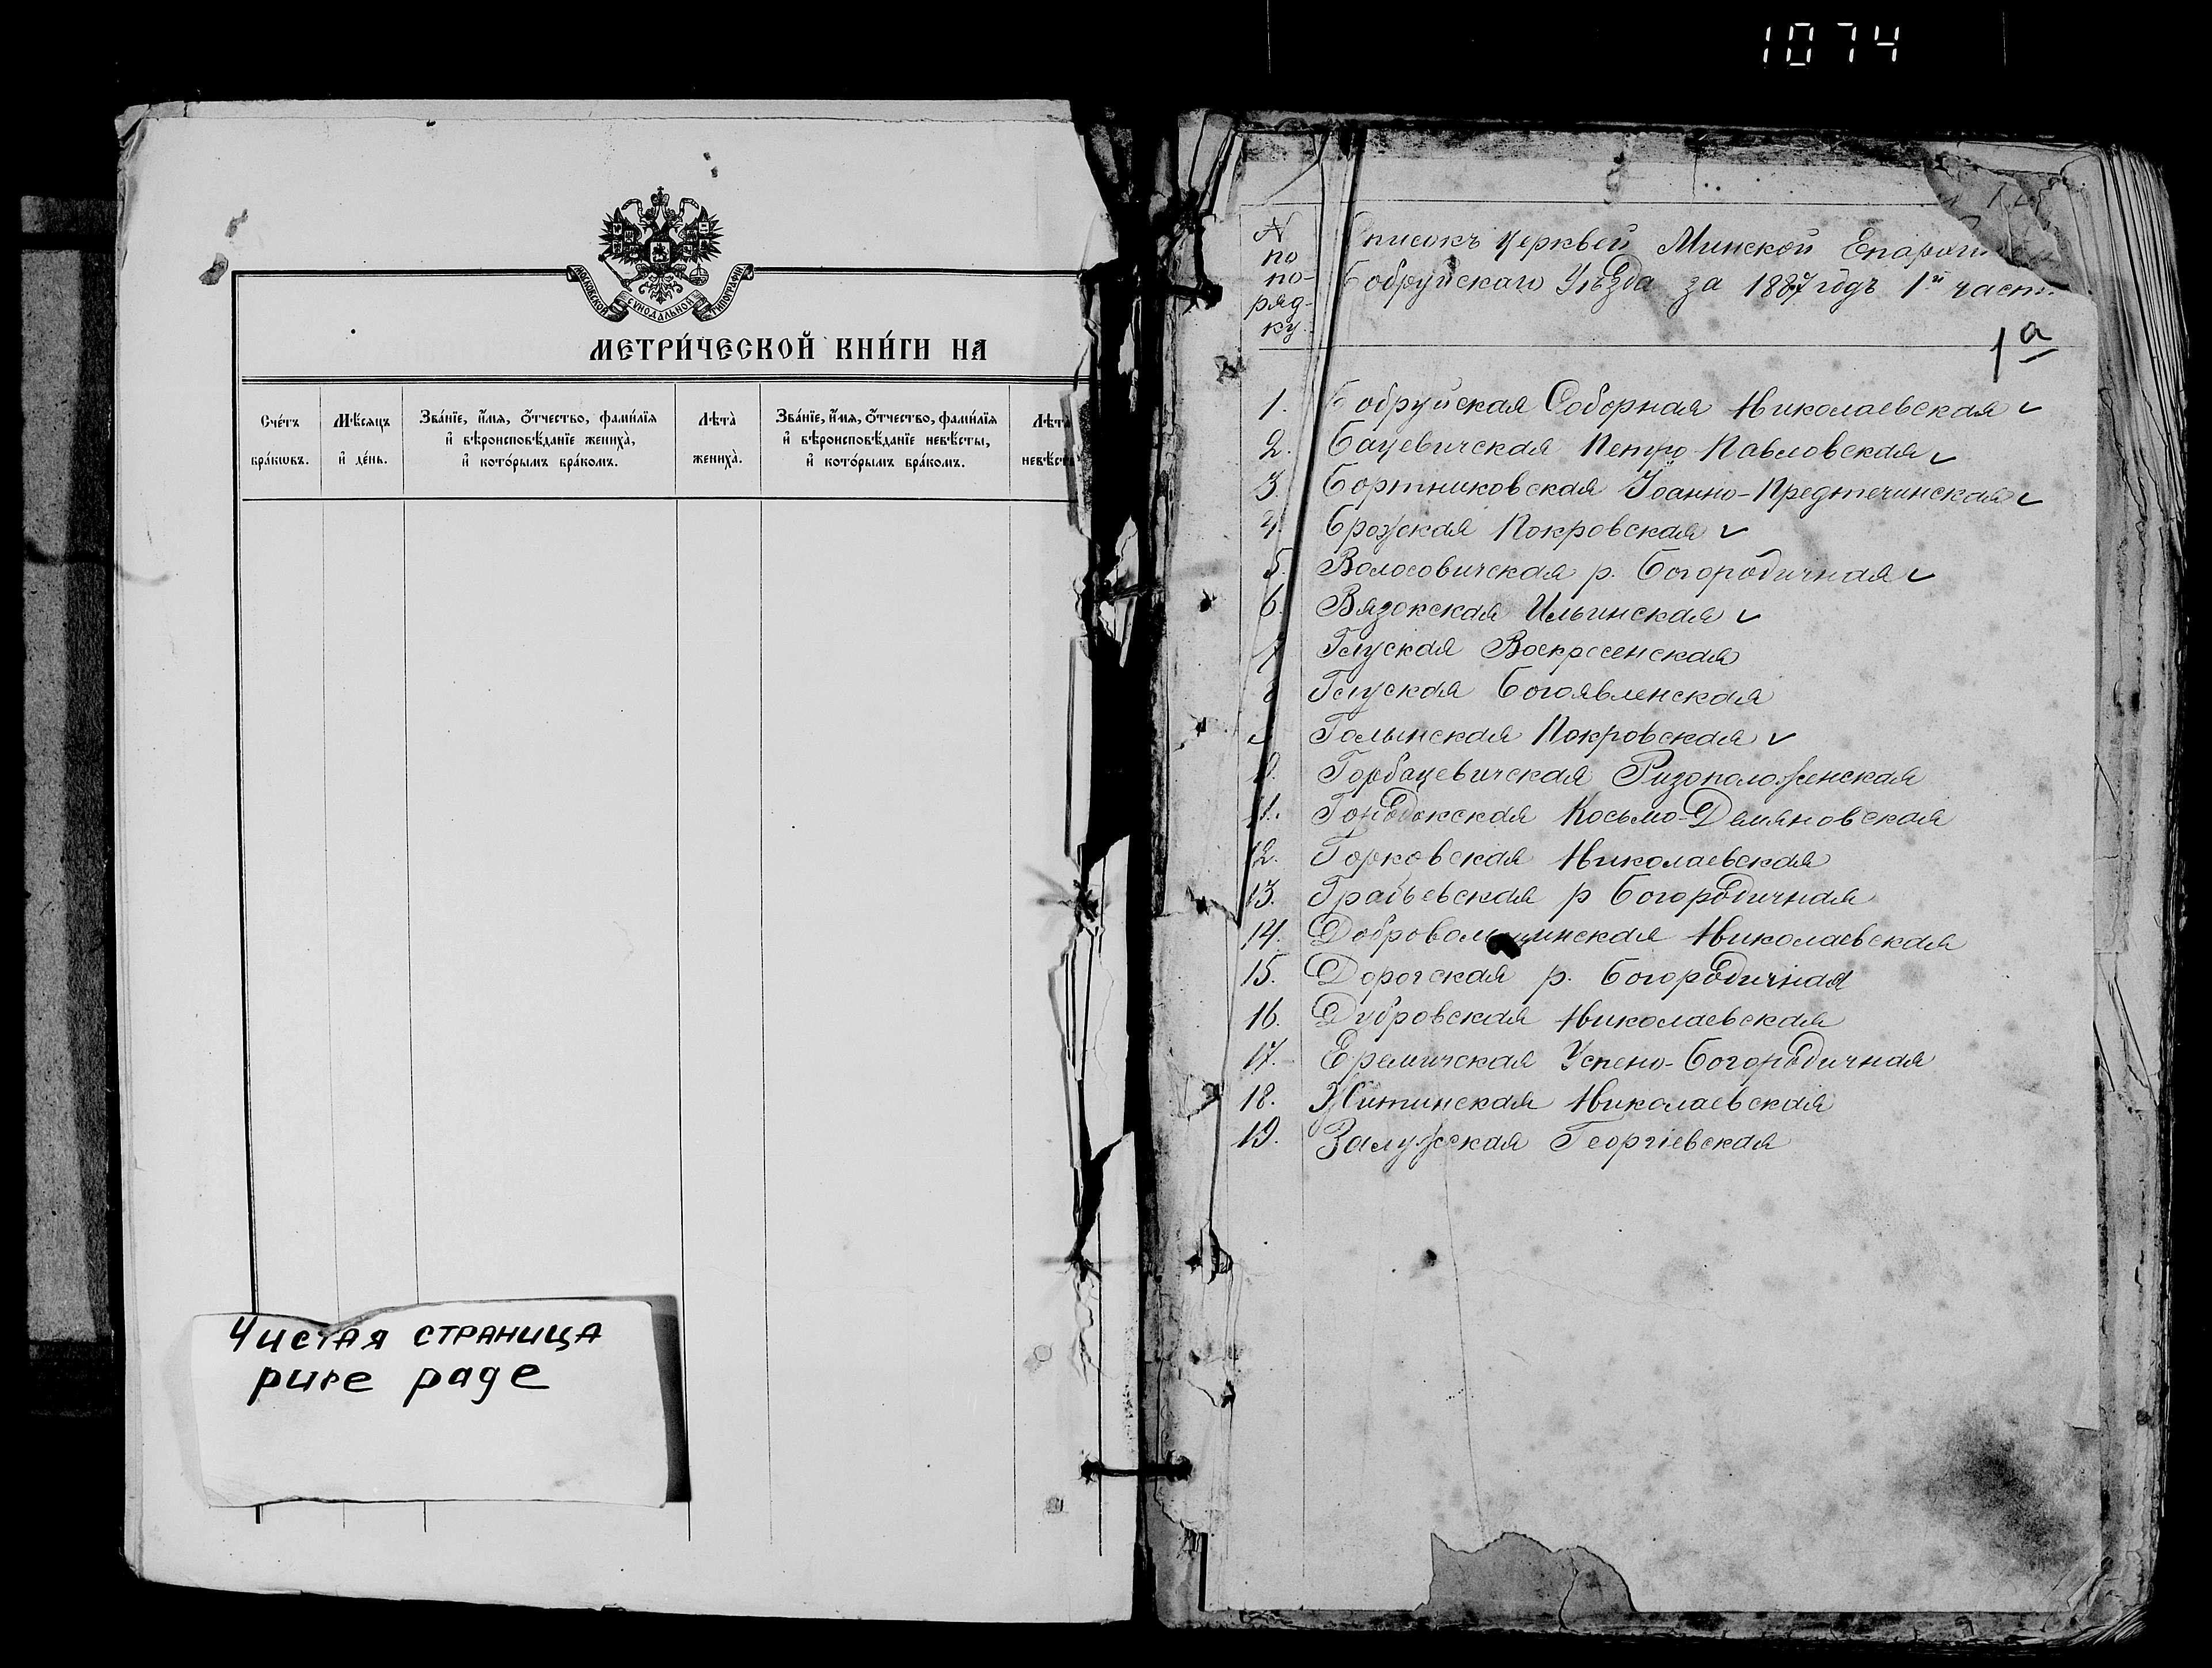 1074
МОСКОВСКОЙ СѴНОДАЛЬНОЙ ТИПОГРАФІИ
МЕТРИ́ЧЕСКОЙ КНИ́ГИ НА
Сче́тъ бра́кѡвъ.
Мѣ́сѧцъ и҆ де́нь.
Зва́нїе, и҆́мѧ, ѻ҆́тчество, фами́лїѧ
и҆ вѣроисповѣ́данїе жениха̀,
и҆ кото́рымъ бра́комъ.
Лѣта̀ жениха̀.
Зва́нїе, и҆́мѧ, ѻ҆́тчество, фами́лїѧ
и҆ вѣроисповѣ́данїе невѣ́сты,
и҆ кото́рымъ бра́комъ.
Лѣта̀
Чистая страница
pure page
№ по по-ряд-ку.
Списокъ церквей Минской
Бобруйскаго Уѣзда за 1887 годъ 1й
1а
1. Бобруйская Соборная Николаевская ✓
2. Бацевичская Петро-Павловская ✓
3. Бортниковская Іоанно-Предтечинская ✓
4. Брожская Покровская ✓
5. Волосовичская р. Богородичная ✓
6. Вязокская Ильинская ✓
7 Глуская Воскресенская
8 Глуская Богоявленская
Голынская Покровская ✓
Горбацевичская Ризоположенская
11. Городокская Косьмо-Демяновская
12. Горковская Николаевская
13. Грабьевская р Богородичная
14. Николаевская
15. Дорогская р. Богородичная
16. Дубровская Николаевская
17. Еремичская Успено-Богородичная
18. Житинская Николаевская
19. Залужская Георгіевская